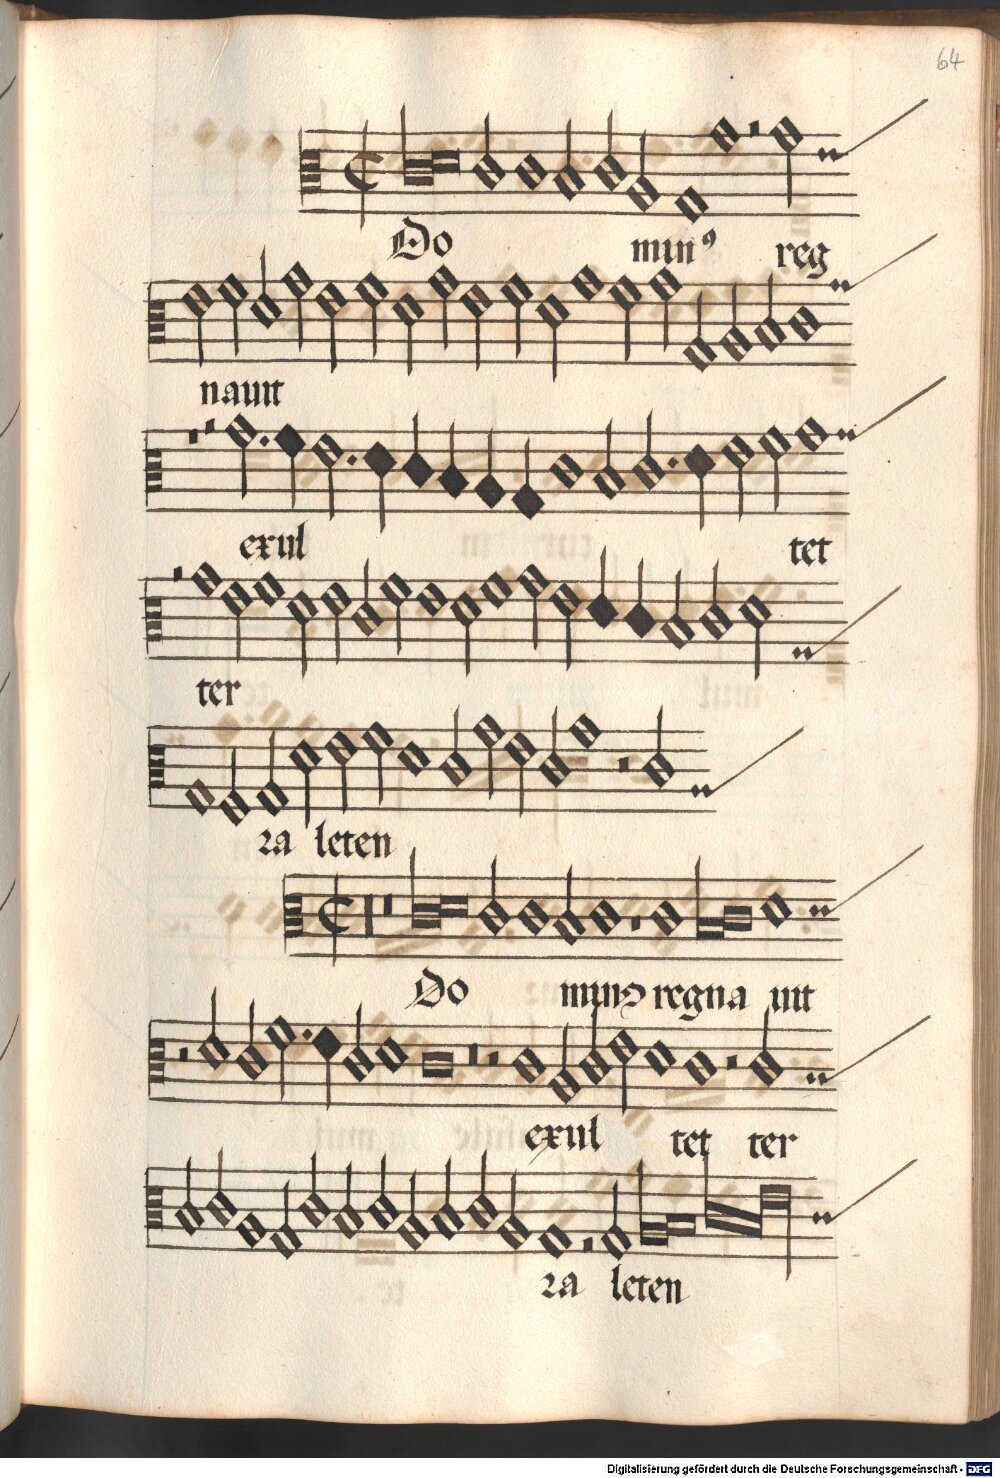 64
Do minꝰ reg
nauit
exul tet
ter
ra leten
Do minꝰ regna uit
exul tet ter
ra leten
Digitalisierung gefördert durch die Deutsche Forschungsgemeinschaft - DFG